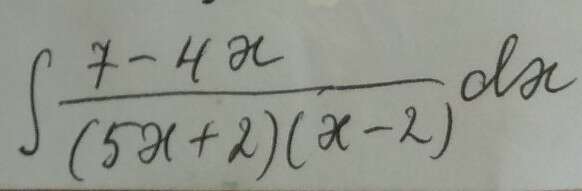 ∫ (7 - 4x) / ((5x + 2)(x - 2)) dx